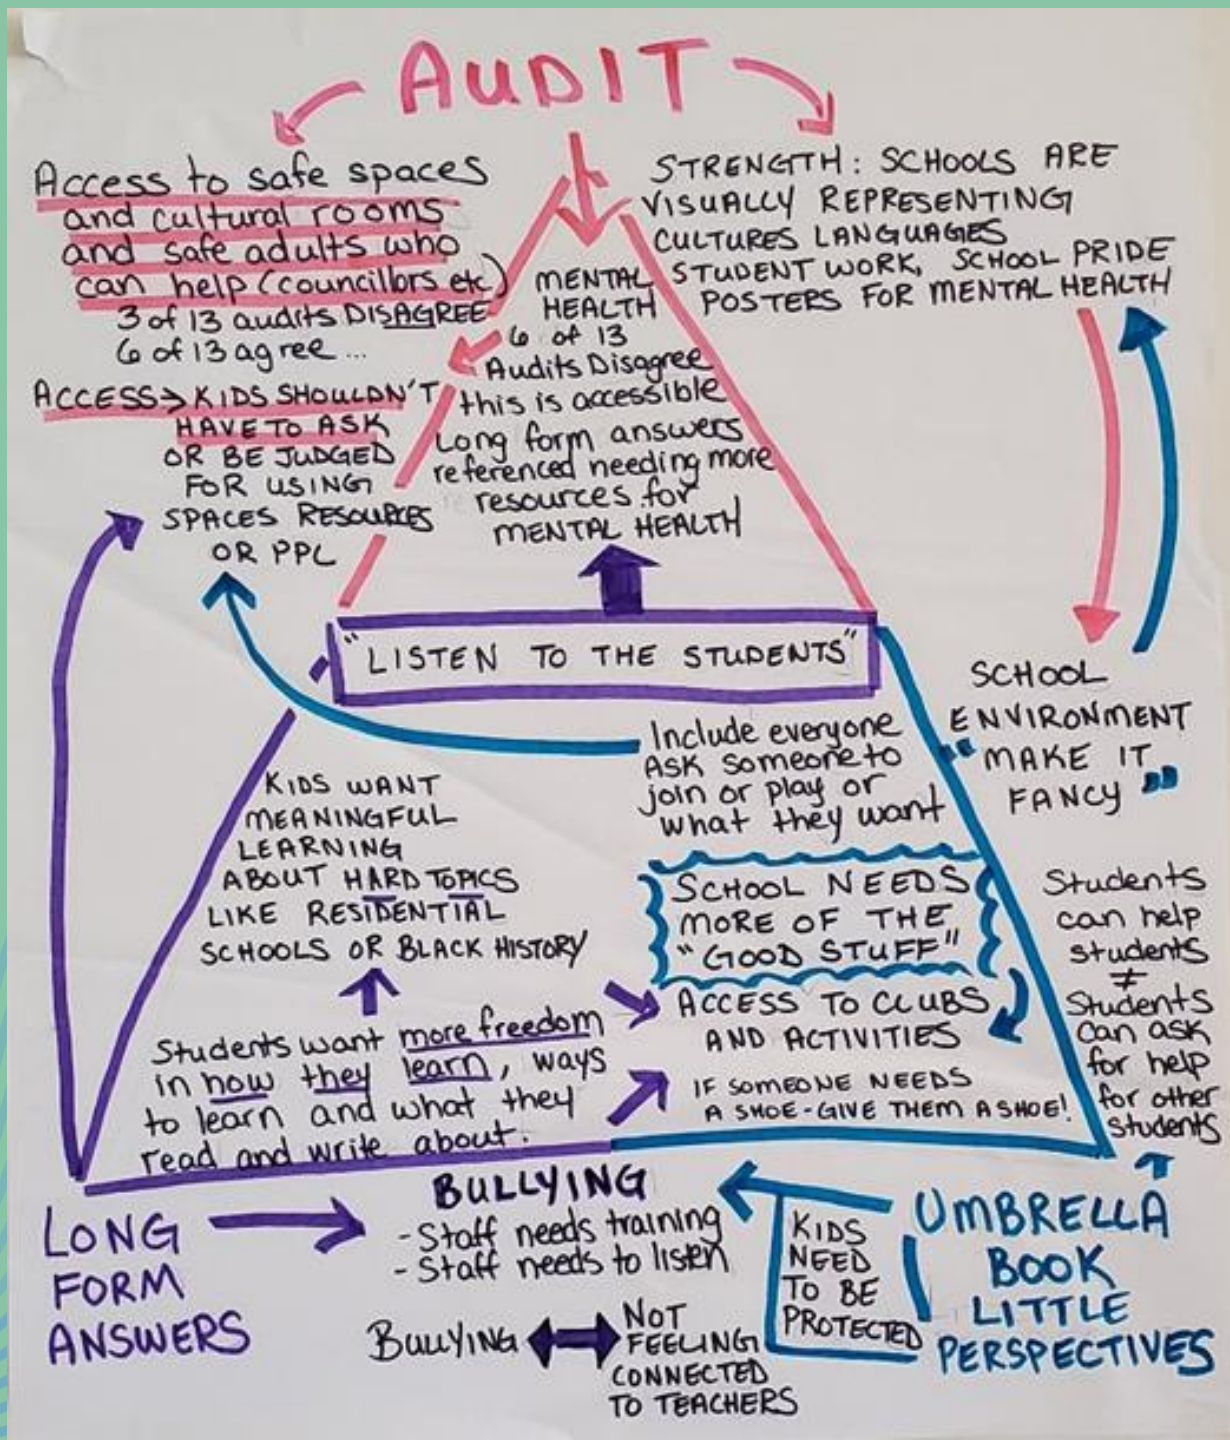 AUDIT
Access to safe spaces
and cultural rooms
and safe adults who
can help (councillors etc)
3 of 13 audits DISAGREE
6 of 13 agree ...
ACCESS → KIDS SHOULDN'T
HAVE TO ASK
OR BE JUDGED
FOR USING
SPACES RESOURCES
OR PPL
MENTAL
HEALTH
6 of 13
Audits Disagree
this is accessible
Long form answers
referenced needing more
resources for
MENTAL HEALTH
STRENGTH: SCHOOLS ARE
VISUALLY REPRESENTING
CULTURES LANGUAGES
STUDENT WORK, SCHOOL PRIDE
POSTERS FOR MENTAL HEALTH
"LISTEN TO THE STUDENTS"
SCHOOL
ENVIRONMENT
"MAKE IT
FANCY"
Include everyone
ASK someone to
join or play or
what they want
KIDS WANT
MEANINGFUL
LEARNING
ABOUT HARD TOPICS
LIKE RESIDENTIAL
SCHOOLS OR BLACK HISTORY
SCHOOL NEEDS
MORE OF THE
"GOOD STUFF"
ACCESS TO CLUBS
AND ACTIVITIES
IF SOMEONE NEEDS
A SHOE - GIVE THEM A SHOE!
Students want more freedom
in how they learn, ways
to learn and what they
read and write about.
Students
can help
students
≠
Students
can ask
for help
for other
students
LONG
FORM
ANSWERS
BULLYING
- Staff needs training
- Staff needs to listen
BULLYING ↔ NOT
FEELING
CONNECTED
TO TEACHERS
KIDS
NEED
TO BE
PROTECTED
UMBRELLA
BOOK
LITTLE
PERSPECTIVES